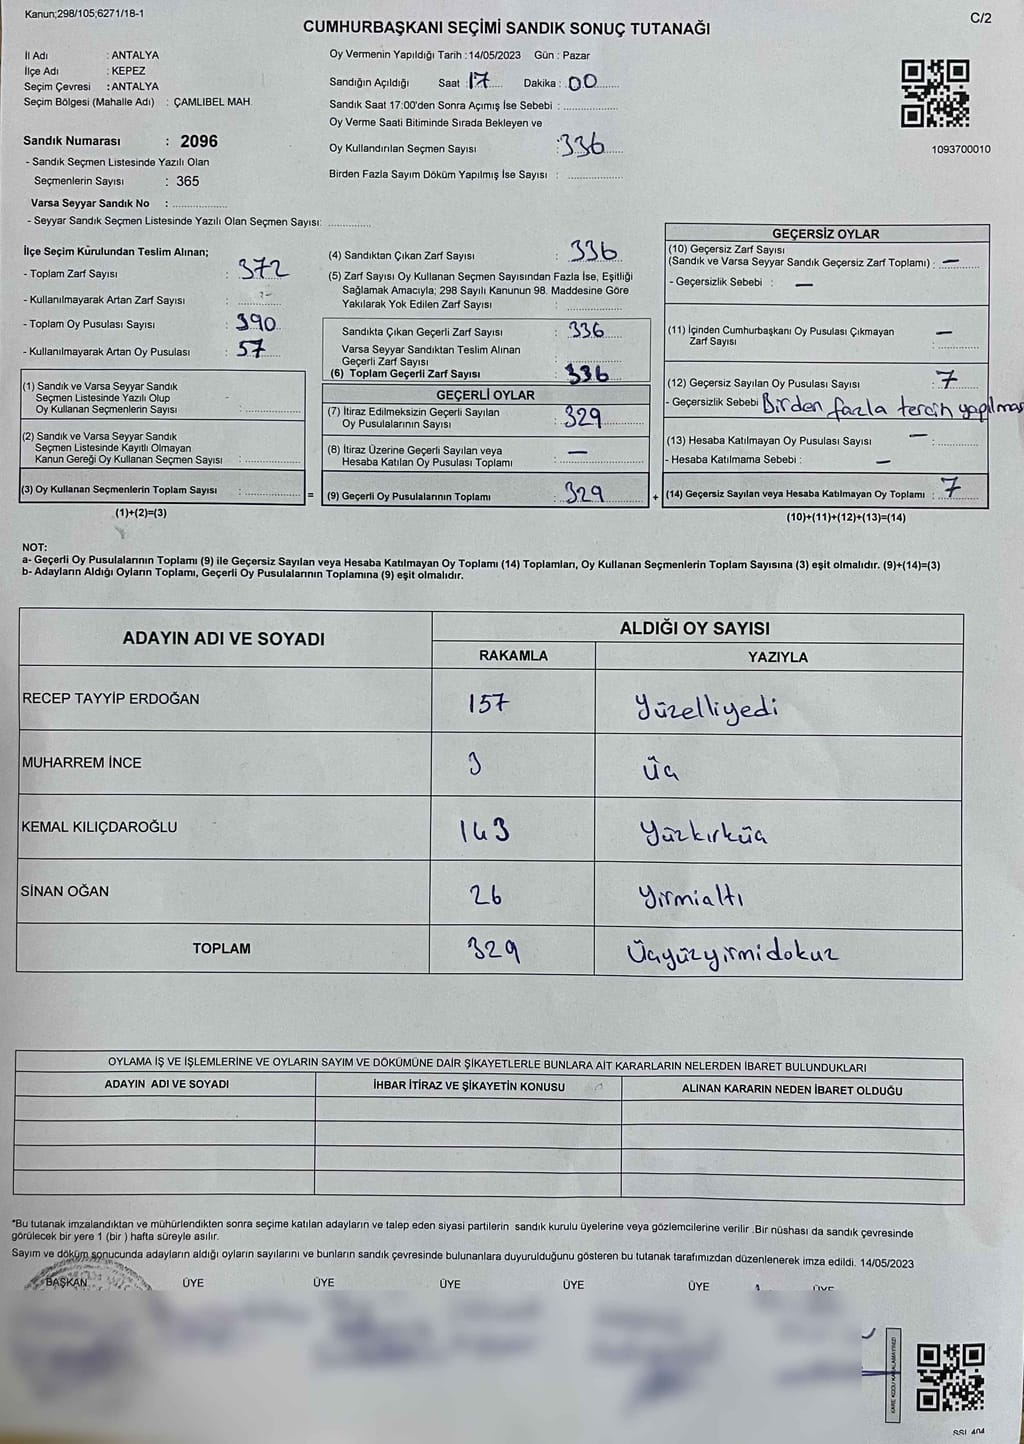 Kanun;298/105;6271/18-1
C/2
CUMHURBAŞKANI SEÇİMİ SANDIK SONUÇ TUTANAĞI
İl Adı : ANTALYA
İlçe Adı : KEPEZ
Seçim Çevresi : ANTALYA
Seçim Bölgesi (Mahalle Adı) : ÇAMLIBEL MAH.
Sandık Numarası : 2096
- Sandık Seçmen Listesinde Yazılı Olan
Seçmenlerin Sayısı : 365
Varsa Seyyar Sandık No : ..................
- Seyyar Sandık Seçmen Listesinde Yazılı Olan Seçmen Sayısı: ..............
Oy Vermenin Yapıldığı Tarih : 14/05/2023 Gün : Pazar
Sandığın Açıldığı Saat : 17 Dakika : 00
Sandık Saat 17:00'den Sonra Açımış İse Sebebi : ..................
Oy Verme Saati Bitiminde Sırada Bekleyen ve
Oy Kullandırılan Seçmen Sayısı : 336
Birden Fazla Sayım Döküm Yapılmış İse Sayısı : ..................
1093700010
İlçe Seçim Kurulundan Teslim Alınan;
- Toplam Zarf Sayısı : 372
- Kullanılmayarak Artan Zarf Sayısı :
- Toplam Oy Pusulası Sayısı : 390
- Kullanılmayarak Artan Oy Pusulası : 57
(1) Sandık ve Varsa Seyyar Sandık
Seçmen Listesinde Yazılı Olup
Oy Kullanan Seçmenlerin Sayısı : ..................
(2) Sandık ve Varsa Seyyar Sandık
Seçmen Listesinde Kayıtlı Olmayan
Kanun Gereği Oy Kullanan Seçmen Sayısı : ..................
(3) Oy Kullanan Seçmenlerin Toplam Sayısı : ..................
(1)+(2)=(3)
=
(4) Sandıktan Çıkan Zarf Sayısı : 336
(5) Zarf Sayısı Oy Kullanan Seçmen Sayısından Fazla İse, Eşitliği
Sağlamak Amacıyla; 298 Sayılı Kanunun 98. Maddesine Göre
Yakılarak Yok Edilen Zarf Sayısı : ..................
Sandıkta Çıkan Geçerli Zarf Sayısı : 336
Varsa Seyyar Sandıktan Teslim Alınan
Geçerli Zarf Sayısı : ..................
(6) Toplam Geçerli Zarf Sayısı : 336
GEÇERLİ OYLAR
(7) İtiraz Edilmeksizin Geçerli Sayılan
Oy Pusulalarının Sayısı : 329
(8) İtiraz Üzerine Geçerli Sayılan veya
Hesaba Katılan Oy Pusulası Toplamı : —
(9) Geçerli Oy Pusulalarının Toplamı : 329
+
GEÇERSİZ OYLAR
(10) Geçersiz Zarf Sayısı
(Sandık ve Varsa Seyyar Sandık Geçersiz Zarf Toplamı) : —
- Geçersizlik Sebebi : —
(11) İçinden Cumhurbaşkanı Oy Pusulası Çıkmayan
Zarf Sayısı : —
(12) Geçersiz Sayılan Oy Pusulası Sayısı : 7
- Geçersizlik Sebebi Birden fazla tercih yapılmas
(13) Hesaba Katılmayan Oy Pusulası Sayısı : —
- Hesaba Katılmama Sebebi : —
(14) Geçersiz Sayılan veya Hesaba Katılmayan Oy Toplamı : 7
(10)+(11)+(12)+(13)=(14)
NOT:
a- Geçerli Oy Pusulalarının Toplamı (9) ile Geçersiz Sayılan veya Hesaba Katılmayan Oy Toplamı (14) Toplamları, Oy Kullanan Seçmenlerin Toplam Sayısına (3) eşit olmalıdır. (9)+(14)=(3)
b- Adayların Aldığı Oyların Toplamı, Geçerli Oy Pusulalarının Toplamına (9) eşit olmalıdır.
ADAYIN ADI VE SOYADI
ALDIĞI OY SAYISI
RAKAMLA YAZIYLA
RECEP TAYYİP ERDOĞAN 157 Yüzelliyedi
MUHARREM İNCE 3 üç
KEMAL KILIÇDAROĞLU 143 Yüzkırküç
SİNAN OĞAN 26 Yirmialtı
TOPLAM 329 Üçyüzyirmidokuz
OYLAMA İŞ VE İŞLEMLERİNE VE OYLARIN SAYIM VE DÖKÜMÜNE DAİR ŞİKAYETLERLE BUNLARA AİT KARARLARIN NELERDEN İBARET BULUNDUKLARI
ADAYIN ADI VE SOYADI İHBAR İTİRAZ VE ŞİKAYETİN KONUSU ALINAN KARARIN NEDEN İBARET OLDUĞU
*Bu tutanak imzalandıktan ve mühürlendikten sonra seçime katılan adayların ve talep eden siyasi partilerin sandık kurulu üyelerine veya gözlemcilerine verilir .Bir nüshası da sandık çevresinde
görülecek bir yere 1 (bir ) hafta süreyle asılır.
Sayım ve döküm sonucunda adayların aldığı oyların sayılarını ve bunların sandık çevresinde bulunanlara duyurulduğunu gösteren bu tutanak tarafımızdan düzenlenerek imza edildi. 14/05/2023
BAŞKAN ÜYE ÜYE ÜYE ÜYE ÜYE ÜYE
KARE KODU KARALAMAYINIZ!